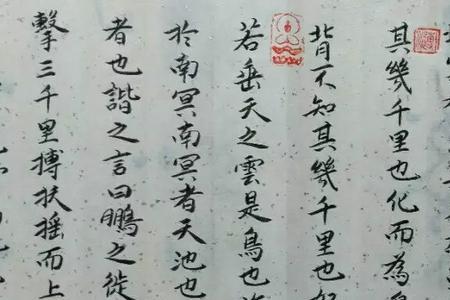 其幾千里也化而為
背不知其幾千里也
若垂天之雲是鳥也
於南冥南冥者天池也
者也諧之言曰鵬之徙
擊三千里搏扶摇而上